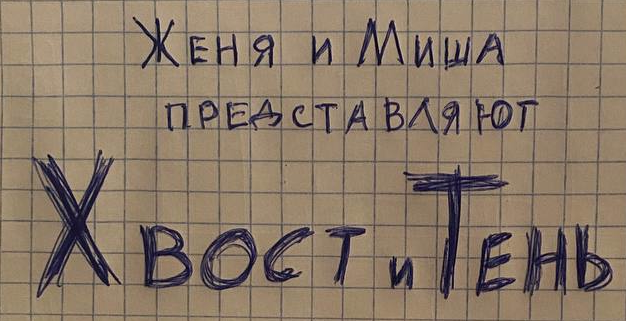 Женя и Миша
ПРЕДСТАВЛЯЮТ
ХВОСТ и ТЕНЬ